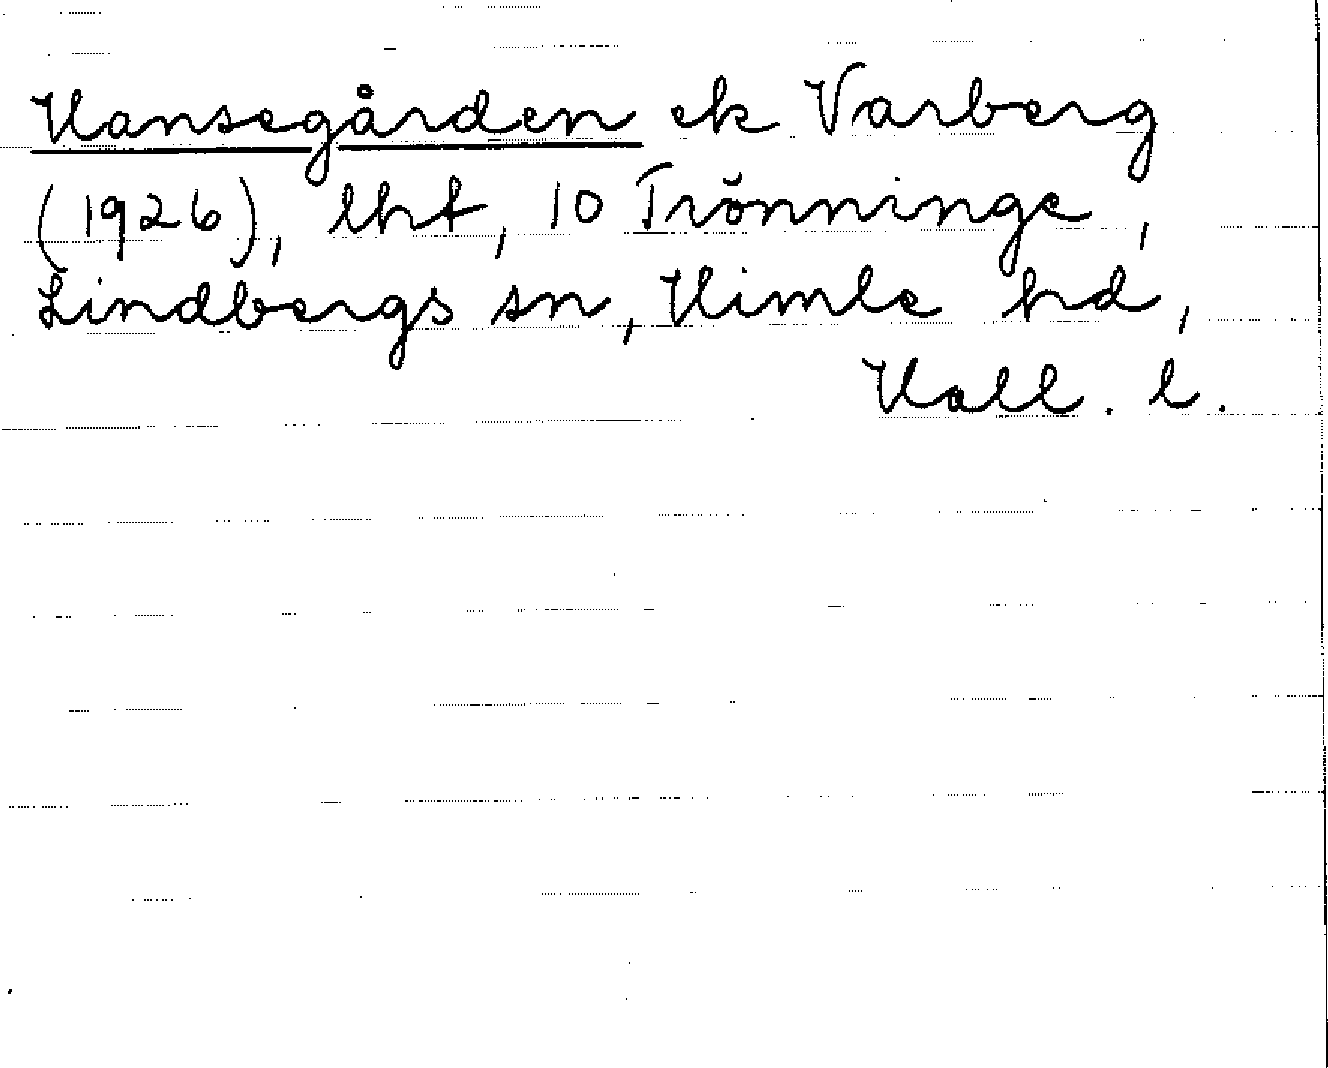 Hansegården ek Varberg
(1926), lht, 10 Trönninge,
Lindbergs sn, Himle hd,
Hall. l.